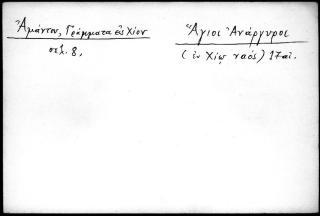 Ἀμάντου, Γράμματα ἐς Χίον
σελ. 8,
Ἅγιοι Ἀνάργυροι
(ἐν Χίῳ ναός) 17 αἰ.